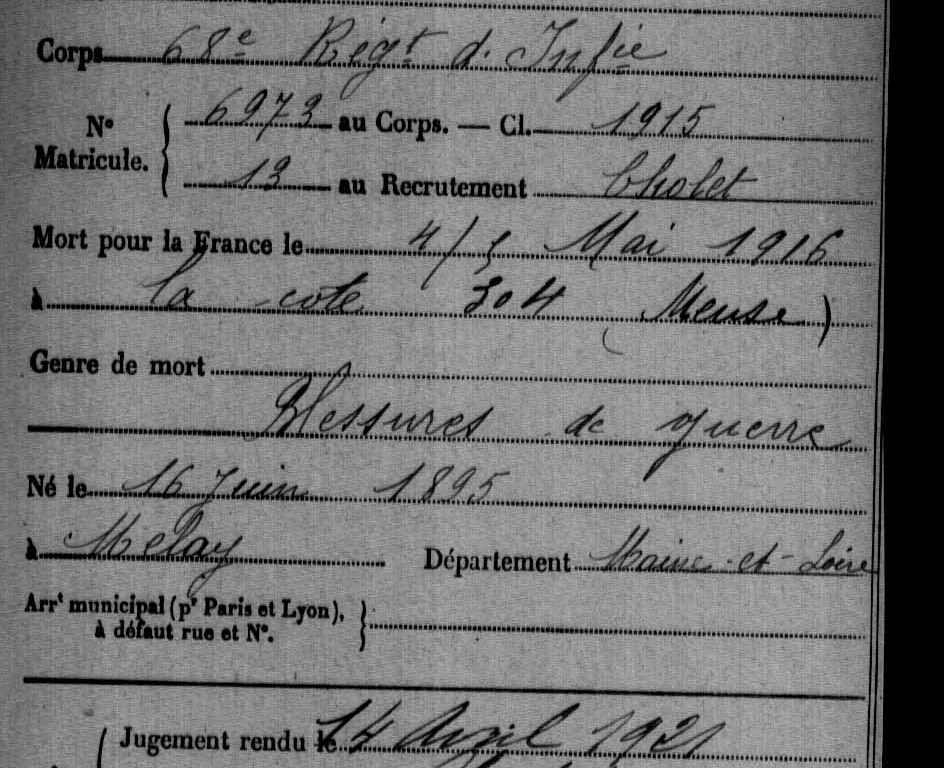 Corps 68e Régt d'Infie
N° Matricule. { 6973 au Corps. — Cl. 1915
13 au Recrutement Cholet
Mort pour la France le 4/5 Mai 1916
à la cote 304 (Meuse)
Genre de mort
Blessures de guerre
Né le 16 Juin 1895
à Melay Département Maine-et-Loire
Arrt municipal (pr Paris et Lyon),
à défaut rue et N°.
Jugement rendu le 14 Avril 1921